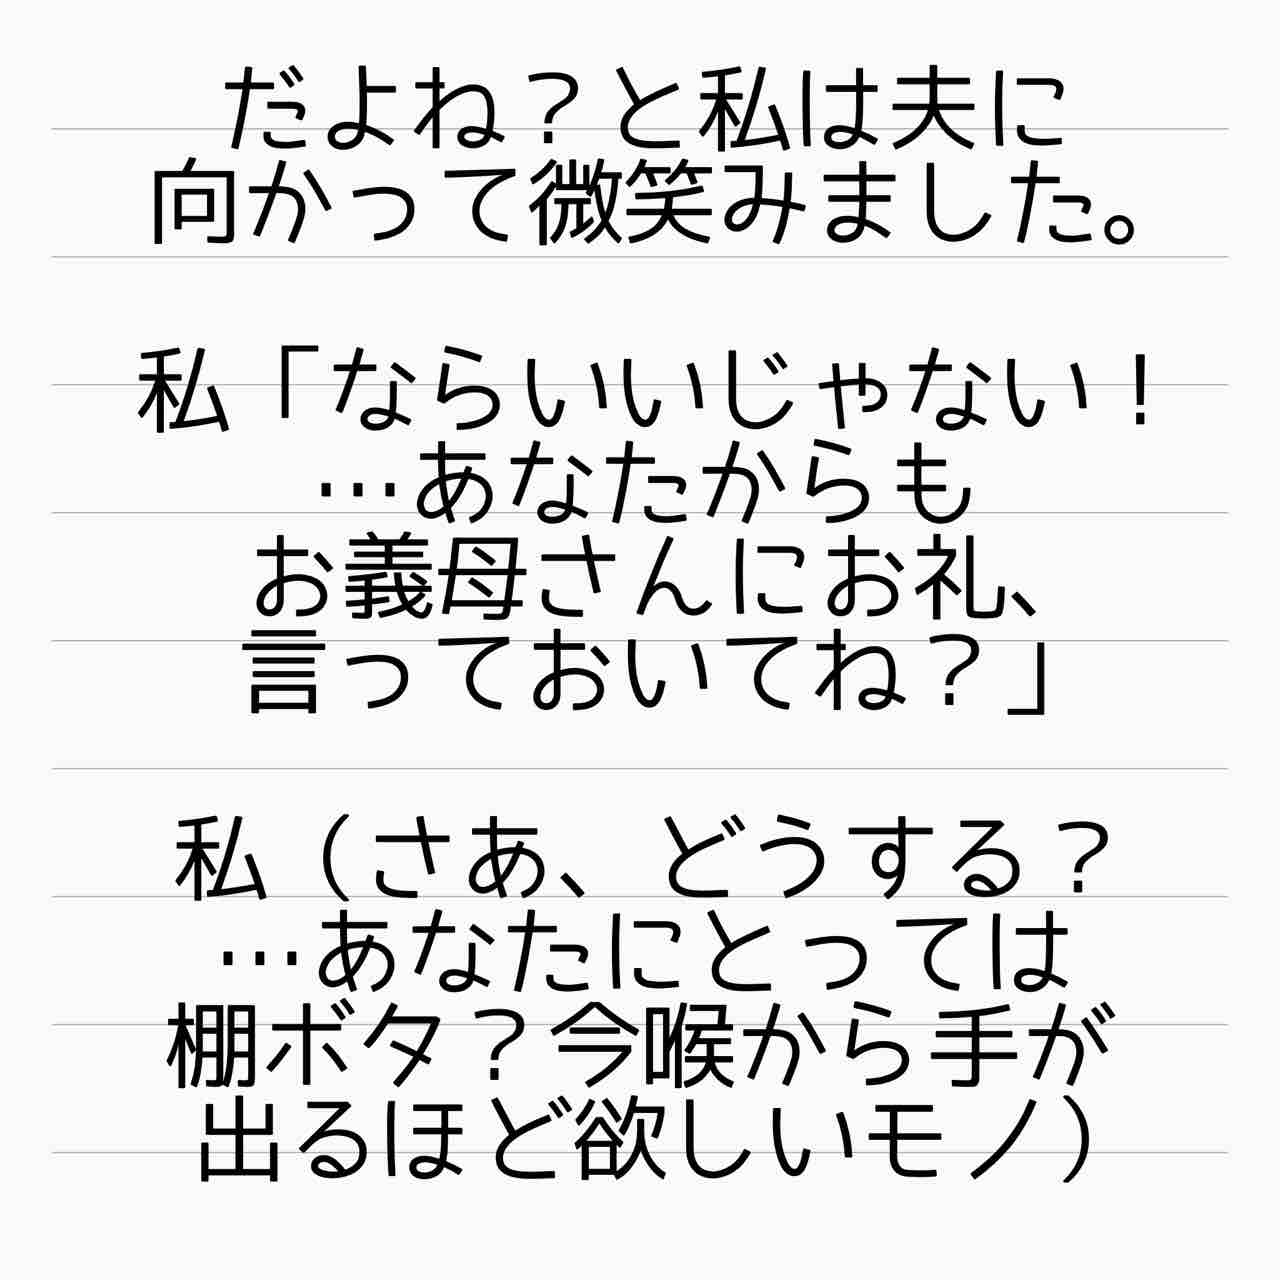 だよね？と私は夫に
向かって微笑みました。
私「ならいいじゃない！
…あなたからも
お義母さんにお礼、
言っておいてね？」
私（さあ、どうする？
…あなたにとっては
棚ボタ？今喉から手が
出るほど欲しいモノ）